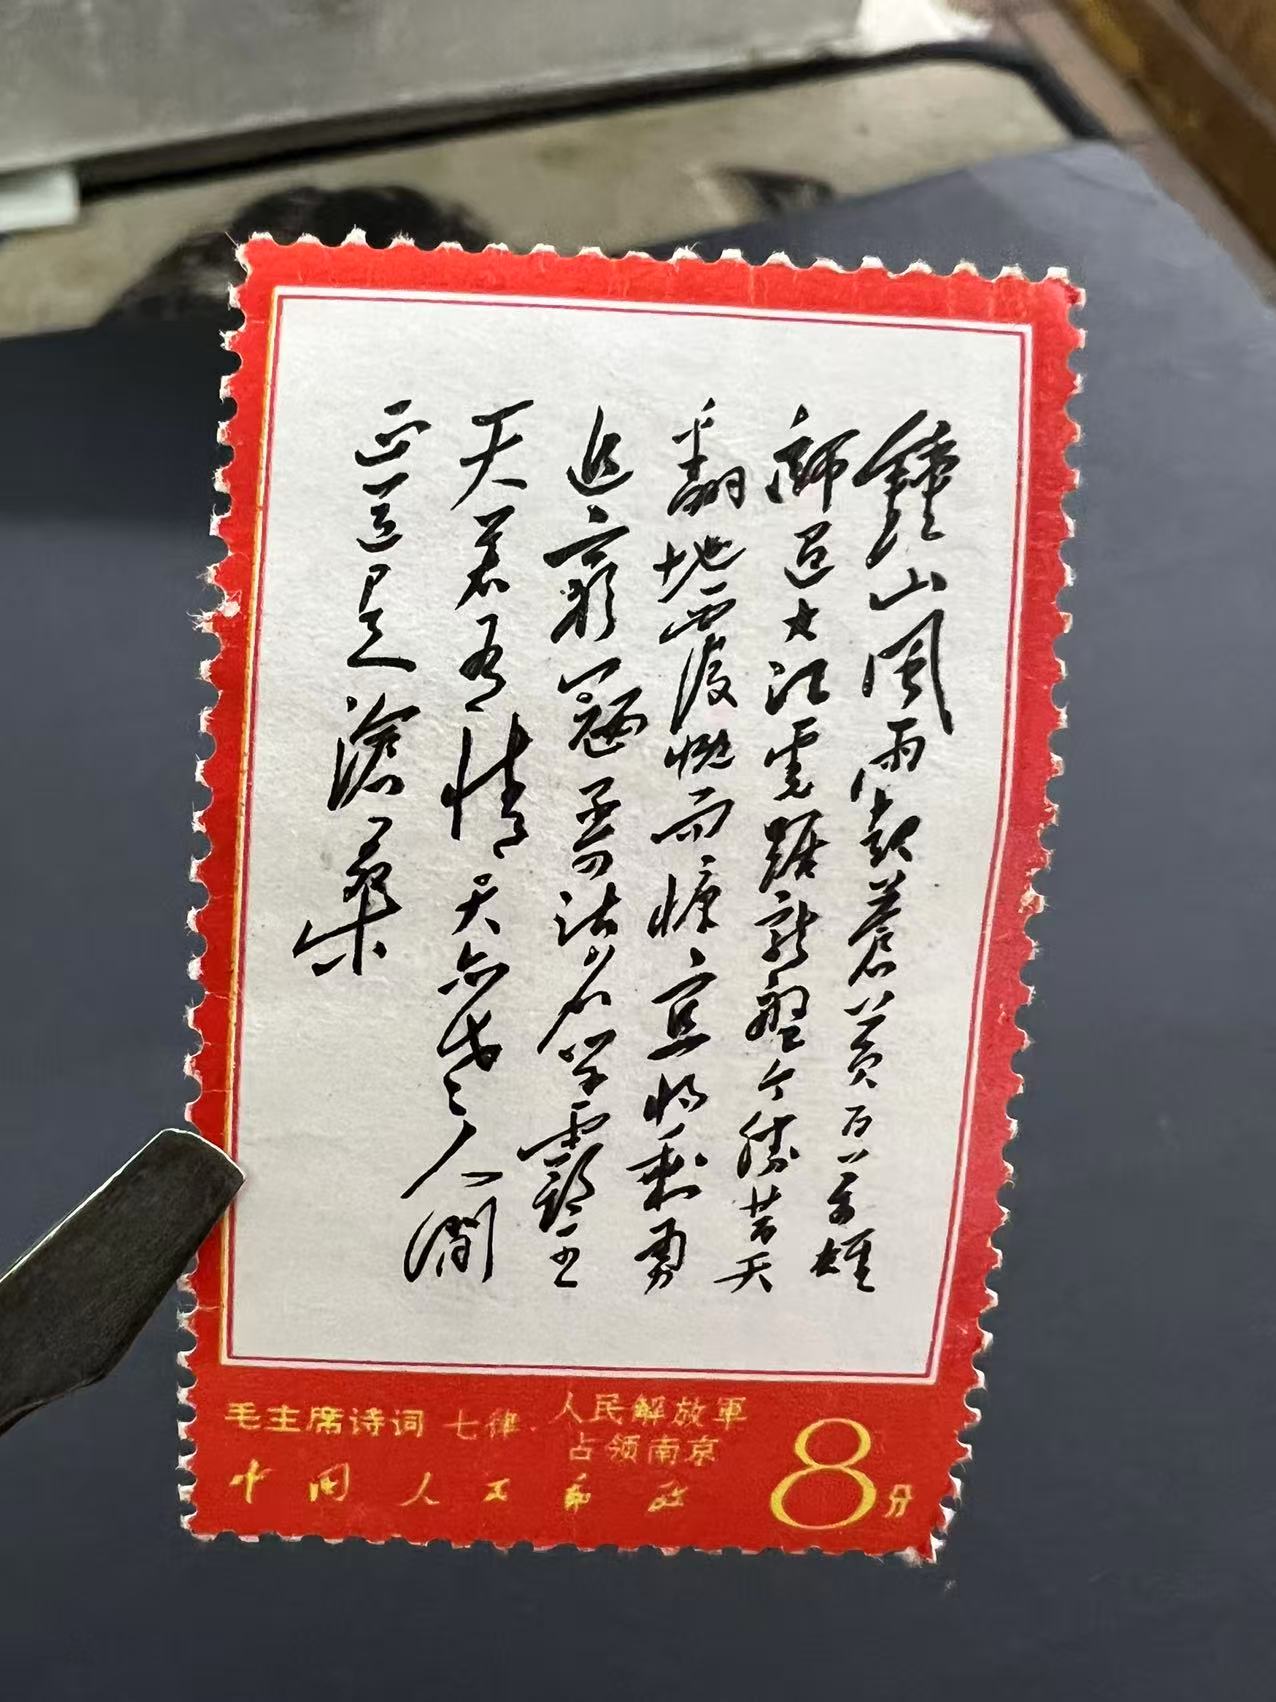 鍾山風雨起蒼黄百萬雄
師過大江虎踞龍盤今勝昔天
翻地覆慨而慷宜將剩勇
追窮寇不可沽名學霸王
天若有情天亦老人間
正道是滄桑
毛主席诗词 七律·人民解放軍
占领南京
中国人民邮政 8分